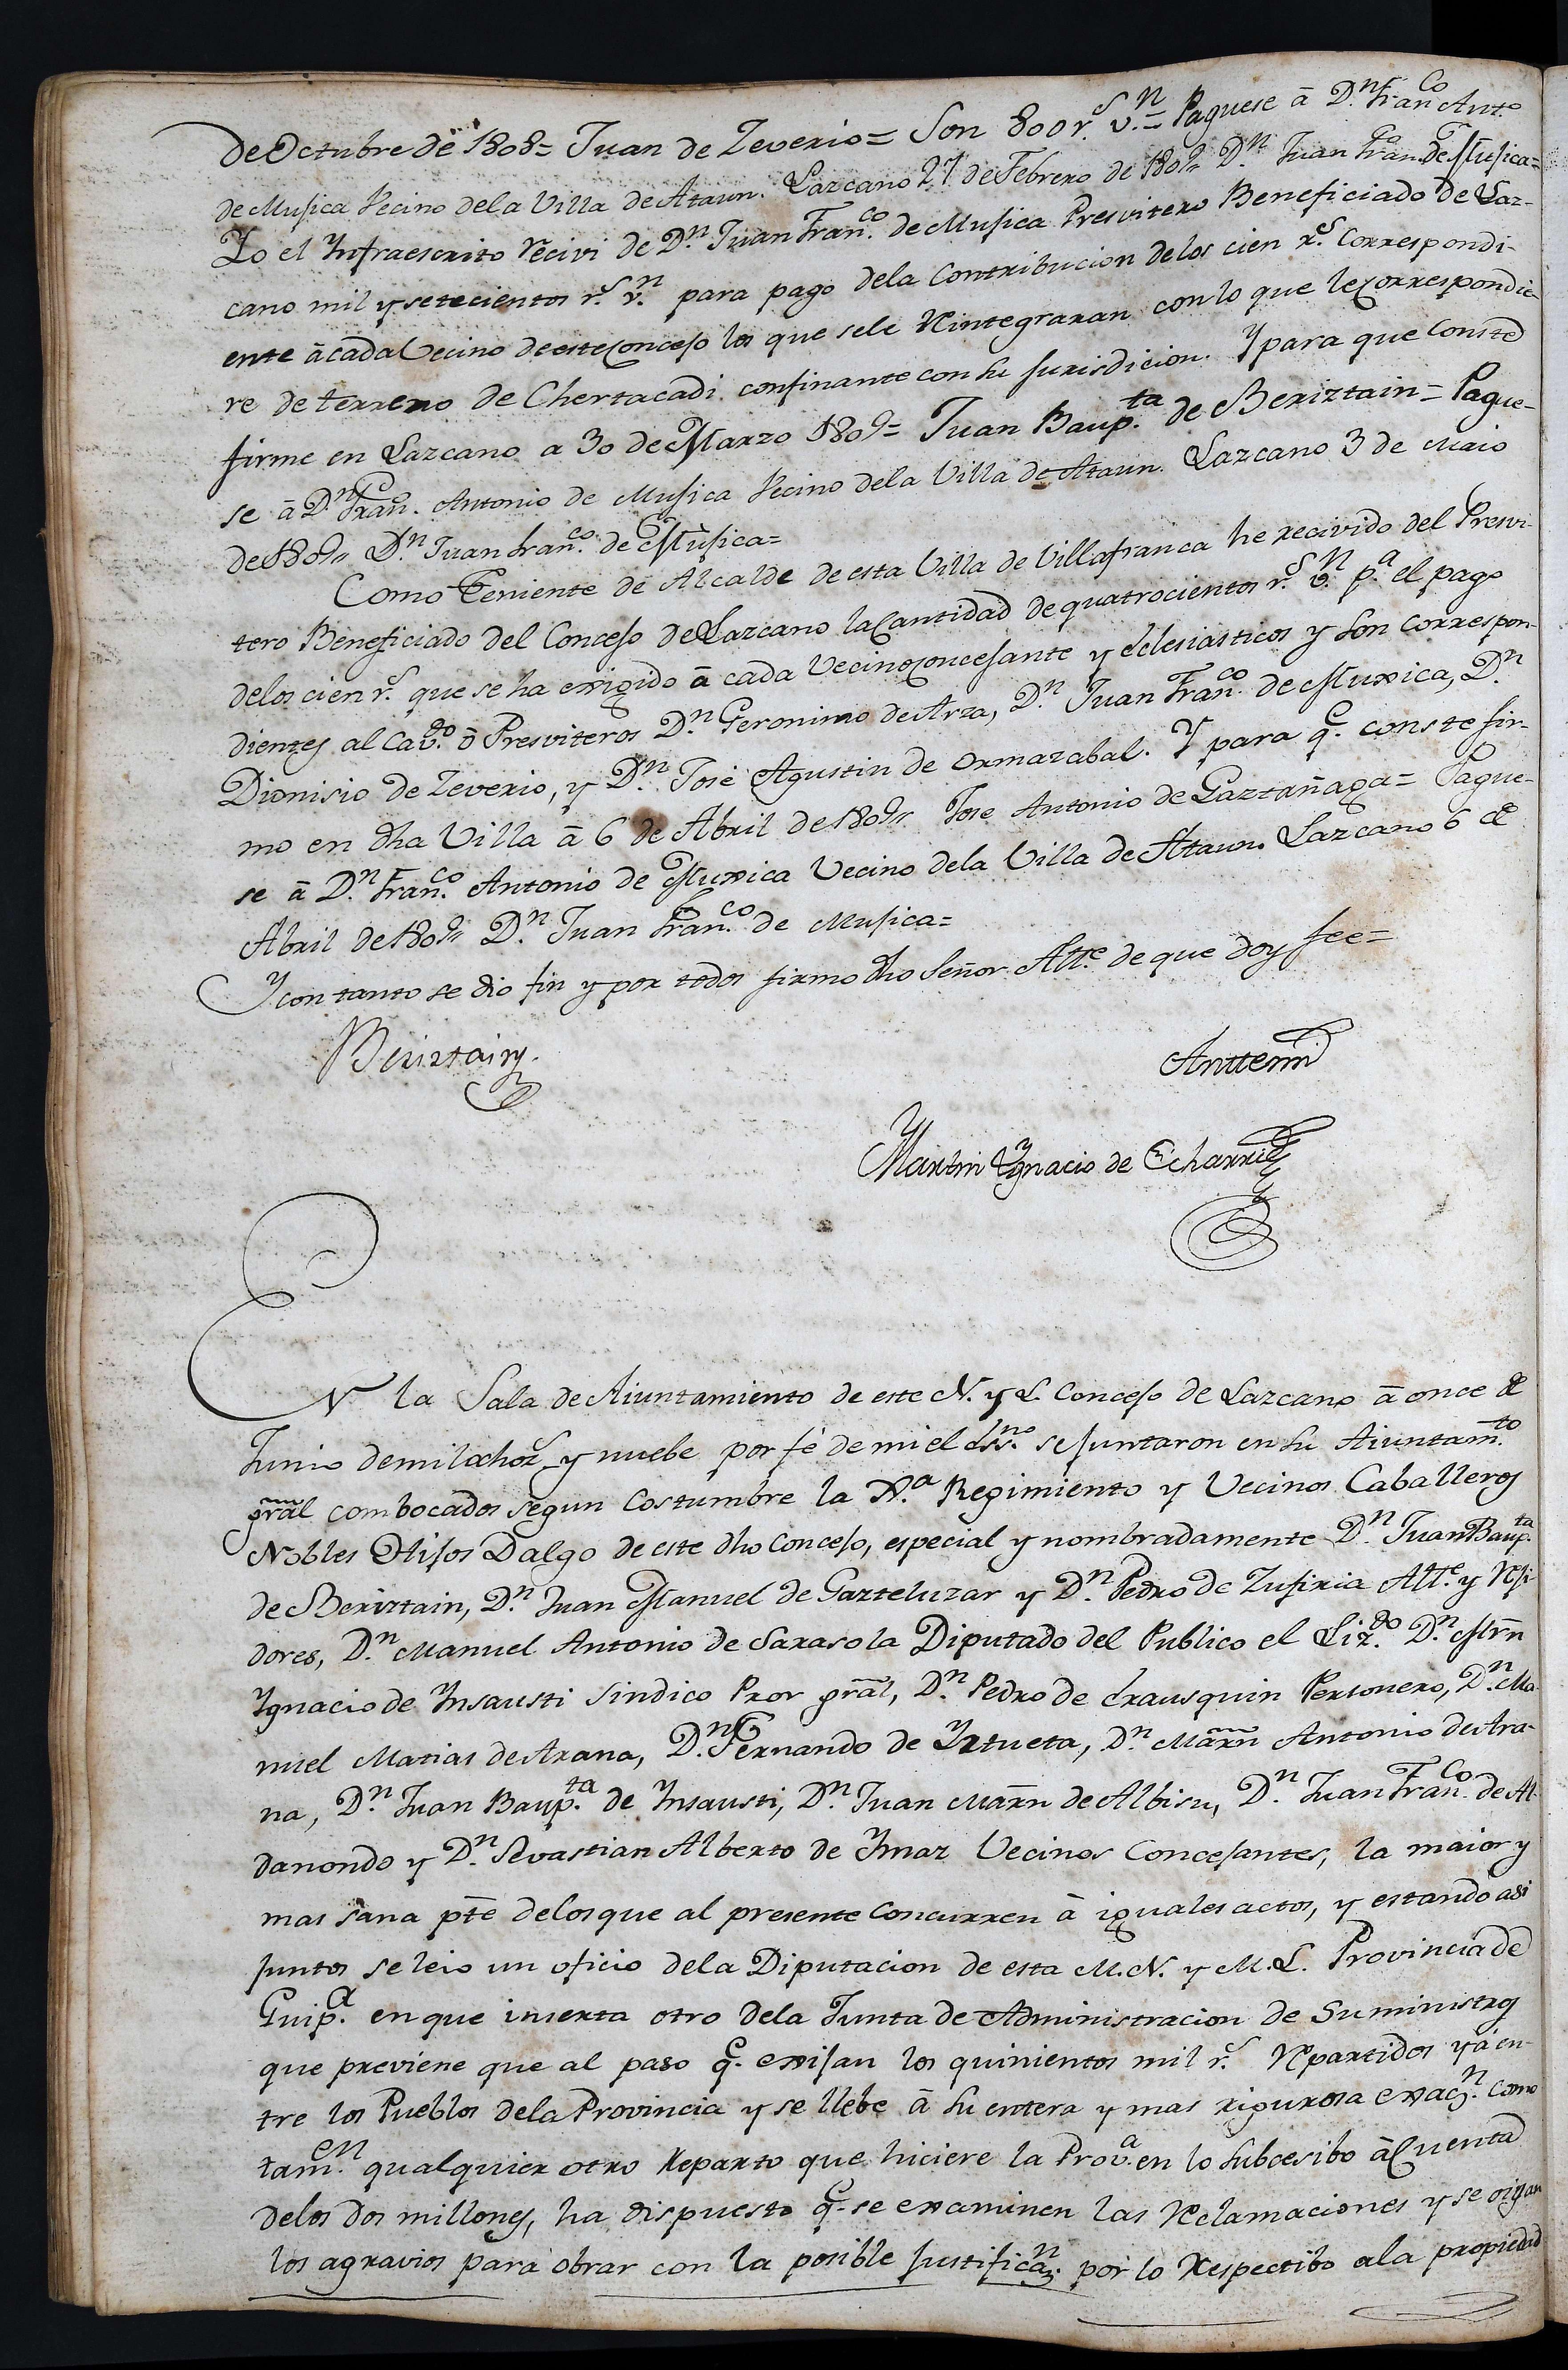 de Octubre de 1808= Juan de Zeverio= Son 800 r.s v.n= Paguese â D.n Fran.co Ant.o
de Mujica Vecino de la Villa de Ataun. Lazcano 27 de Febrero de 1809,, D.n Juan Fran.co de Mujica=
Yo el Ynfraescrito recivi de D.n Juan Fran.co de Mujica Presvitero Beneficiado de Laz-
cano mil y setecientos r.s v.n para pago de la Contribucion de los cien r.s Correspondi-
ente â cada Vecino de este Concejo los que se le Reintegraran con lo que le correspondie-
re de terreno de Chertacadi confinante con su jurisdicion. Y para que Conste
firme en Lazcano a 30 de Marzo 1809= Juan Baup.ta de Beriztain= Pague-
se â D.n Fran.co Antonio de Mujica Vecino de la Villa de Ataun. Lazcano 3 de Maio
de 1809,, D.n Juan Fran.co de Mujica=
Como Teniente de Alcalde de esta Villa de Villafranca he recivido del Presvi-
tero Beneficiado del Concejo de Lazcano la Cantidad de quatrocientos r.s v.n p.a el pago
de los cien r.s que se ha exigido â cada Vecino concejante y eclesiasticos y son correspon-
dientes al Cav.do ô Presviteros D.n Geronimo de Arza, D.n Juan Fran.co de Muxica, D.n
Dionisio de Zeverio, y D.n José Agustin de Ormazabal. Y para q.e conste fir-
mo en dha Villa â 6 de Abril de 1809,, Jose Antonio de Gaztañaga= Pague-
se â D.n Fran.co Antonio de Muxica Vecino de la Villa de Ataun. Lazcano 6 de
Abril de 1809,, D.n Juan Fran.co de Mujica=
Y con tanto se dio fin y por todos firmo dho Señor Alt.e de que doy fee=
Beriztain
Anttemi
Martin Ygnacio de Echarri
EN la Sala de Aiuntamiento de este N. y L. Concejo de Lazcano â once de
Junio de mil ochoz.s y nuebe por fé de mi el Ess.no se juntaron en su Aiuntam.to
gral combocados segun Costumbre la Jus.a Regimiento y Vecinos Caballeros
Nobles Hijos Dalgo de este dho Concejo, especial y nombradamente D.n Juan Baup.ta
de Beriztain, D.n Juan Manuel de Gazteluzar y D.n Pedro de Zufiria Alt.e y Rexi-
dores, D.n Manuel Antonio de Sarasola Diputado del Publico el Liz.do D.n Mrn
Ygnacio de Ynsausti Sindico Pror gral, D.n Pedro de Erausquin Personero, D.n Ma-
nuel Matias de Arana, D.n Fernando de Yztueta, D.n Marn Antonio de Ara-
na, D.n Juan Baup.ta de Ynsausti, D.n Juan Marn de Albisu, D.n Juan Fran.co de Al-
danondo y D.n Sevastian Alberto de Ymaz Vecinos Concejantes, la maior y
mas sana pte de los que al presente concurren â iguales actos, y estando asi
juntos se leio un oficio de la Diputacion de esta M. N. y M. L. Provincia de
Guip.a en que inserta otro de la Junta de Administracion de Suministros
que previene que al paso q.e exijan los quinientos mil r.s Repartidos yá en-
tre los Pueblos de la Provincia y se llebe â su entera y mas rigurosa exac.n como
tam.en qualquier otro Reparto que hiciere la Prov.a en lo subcesibo â Cuenta
de los dos millones, ha dispuesto q.e se examinen las Reclamaciones y se oigan
los agravios para obrar con la posible justificaz.n por lo Respectibo a la propiedad